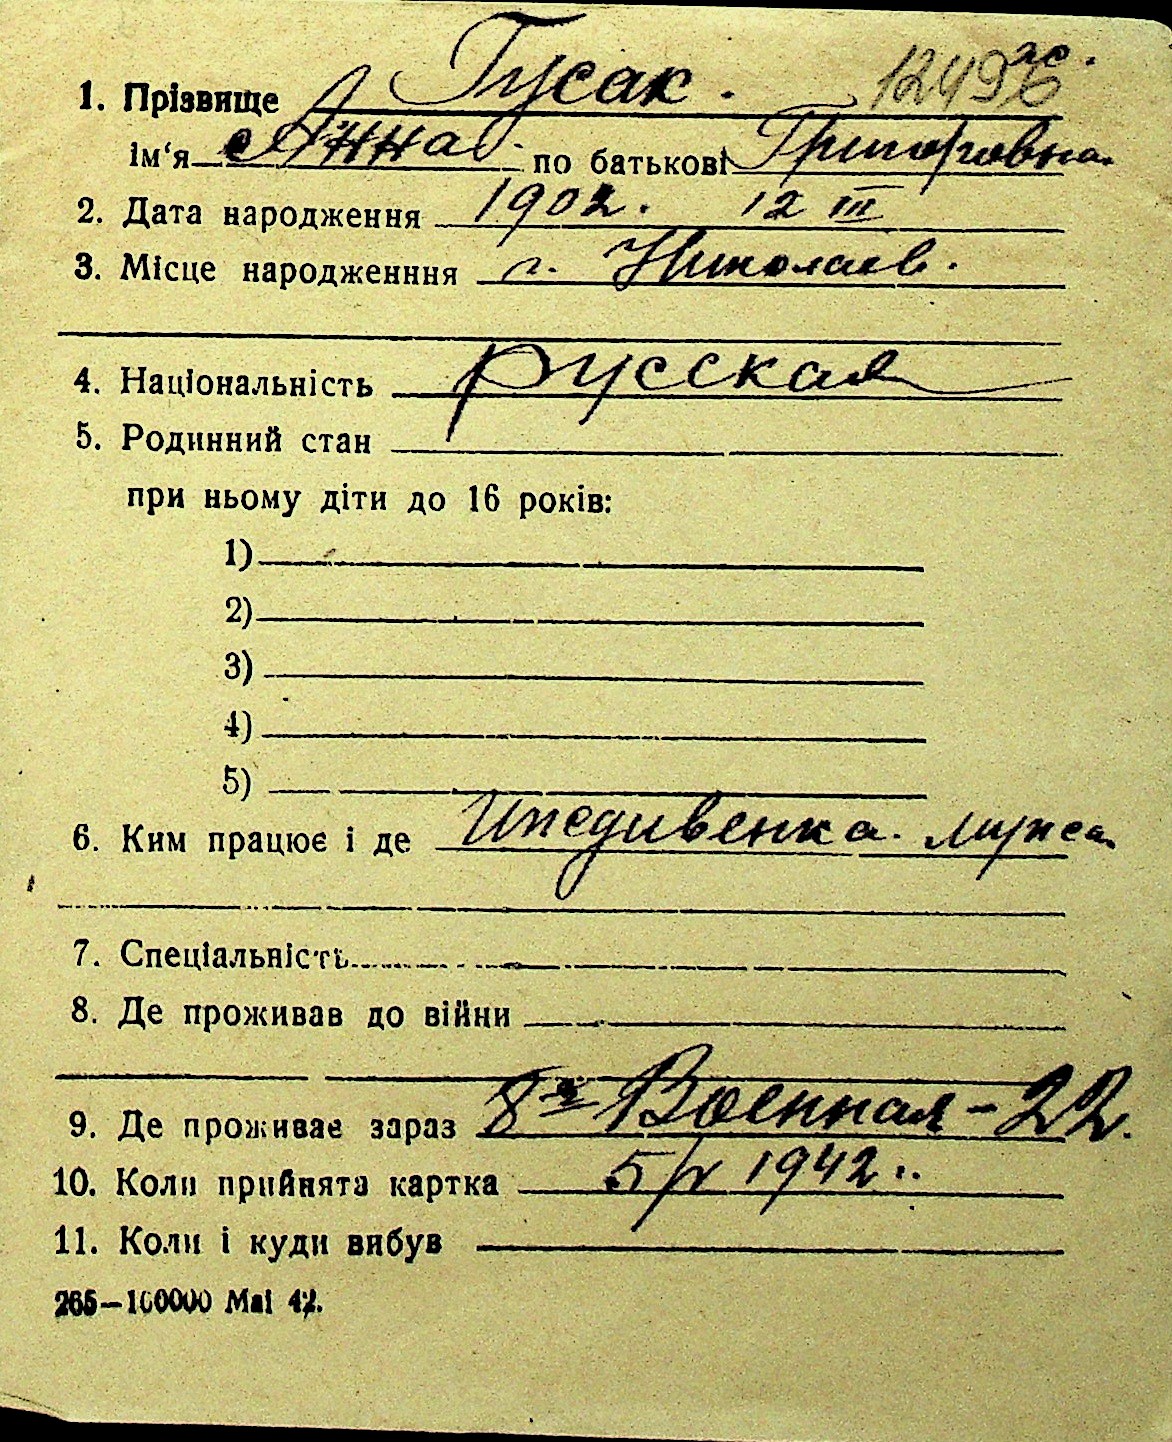 1. Прізвище Гусак. 1249
ім‘я Анна по батькові Григоровна
2. Дата народження 1902. 12 III
3. Місце народженння г. Николаев.
4. Національність русская
5. Родинний стан
при ньому діти до 16 років:
1)
2)
3)
4)
5)
6. Ким працює і де Иждивенка. мужа
7. Спеціальність
8. Де проживав до війни
9. Де проживає зараз 8я Военная – 22.
10. Коли прийнята картка 1942.
11. Коли і куди вибув
265—100000 Маі 42.